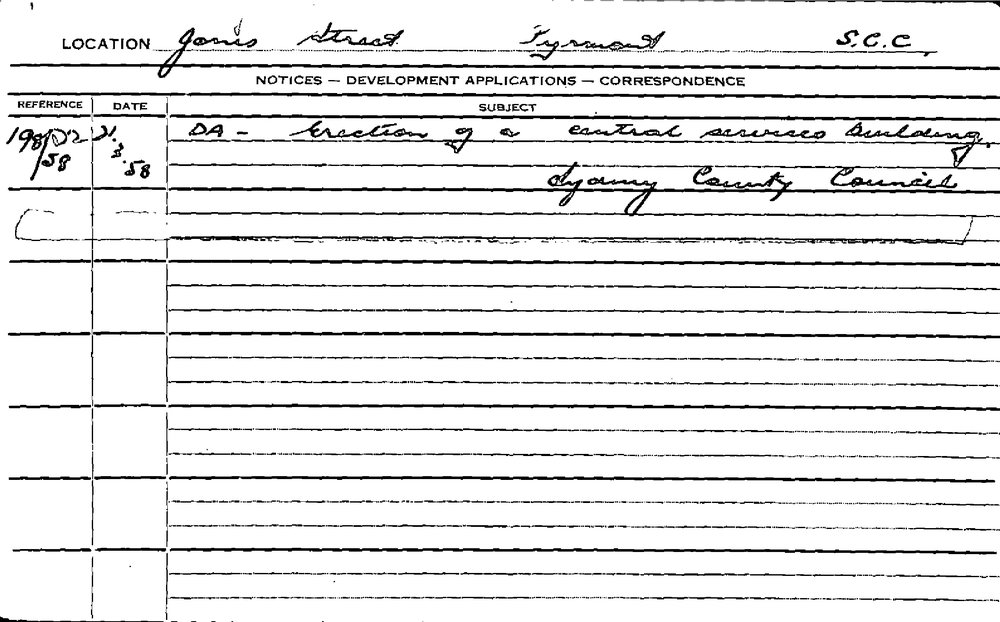 LOCATION Jones Street Pyrmont S.C.C.
NOTICES — DEVELOPMENT APPLICATIONS — CORRESPONDENCE
REFERENCE DATE SUBJECT
198/52 21. DA - Erection of a central services building.
/58 3. 58
Sydney County Council